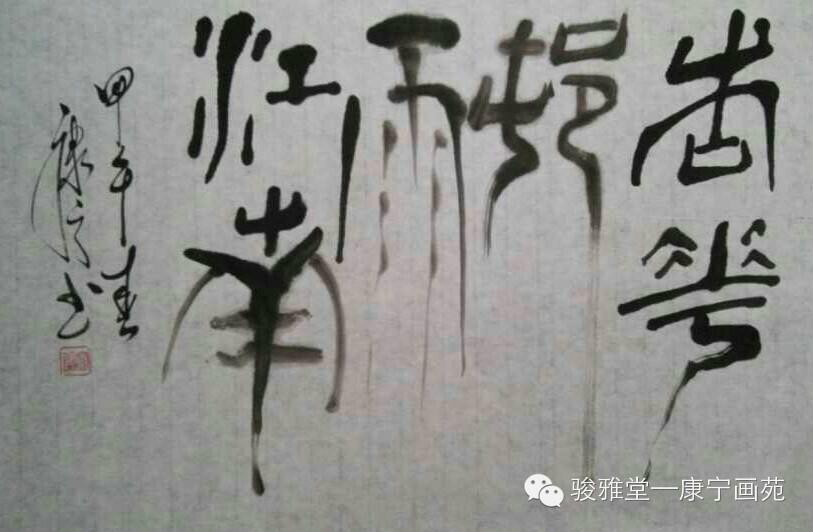 杏花
邨
雨
江南
甲午春
康宁书
骏雅堂一康宁画苑